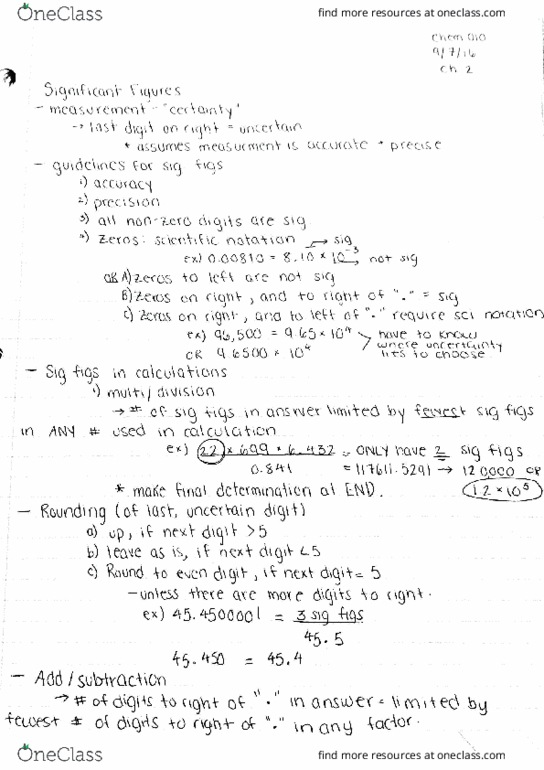 OneClass
find more resources at oneclass.com
Chem 010
9/7/16
Ch 2
Significant Figures
- measurement - "certainty"
→ last digit on right = uncertain
* assumes measurment is accurate + precise
- guidelines for sig figs
1) accuracy
2) precision
3) all non-zero digits are sig
4) Zeros: scientific notation → sig
ex) 0.00810 = 8.10 × 10⁻³ → not sig
OR A) Zeros to left are not sig
B) Zeros on right, and to right of "." = sig
c) Zeros on right, and to left of "." require sci notation
ex) 96,500 = 9.65 × 10⁴ have to know
OR 9.6500 × 10⁴ where uncertainty
lies to choose
- Sig figs in calculations
1) multi / division
→ # of sig figs in answer limited by fewest sig figs
in ANY # used in calculation
ex) 22 × 699 × 6.432 = ONLY have 2 sig figs
0.841 = 117611.5291 → 120000 OR
* make final determination at END. 1.2 × 10⁵
- Rounding (of last, uncertain digit)
a) up, if next digit > 5
b) leave as is, if next digit < 5
c) Round to even digit, if next digit = 5
- unless there are more digits to right.
ex) 45.4500001 = 3 sig figs
45.5
45.450 = 45.4
- Add / subtraction
→ # of digits to right of "." in answer = limited by
fewest # of digits to right of "." in any factor.
OneClass
find more resources at oneclass.com